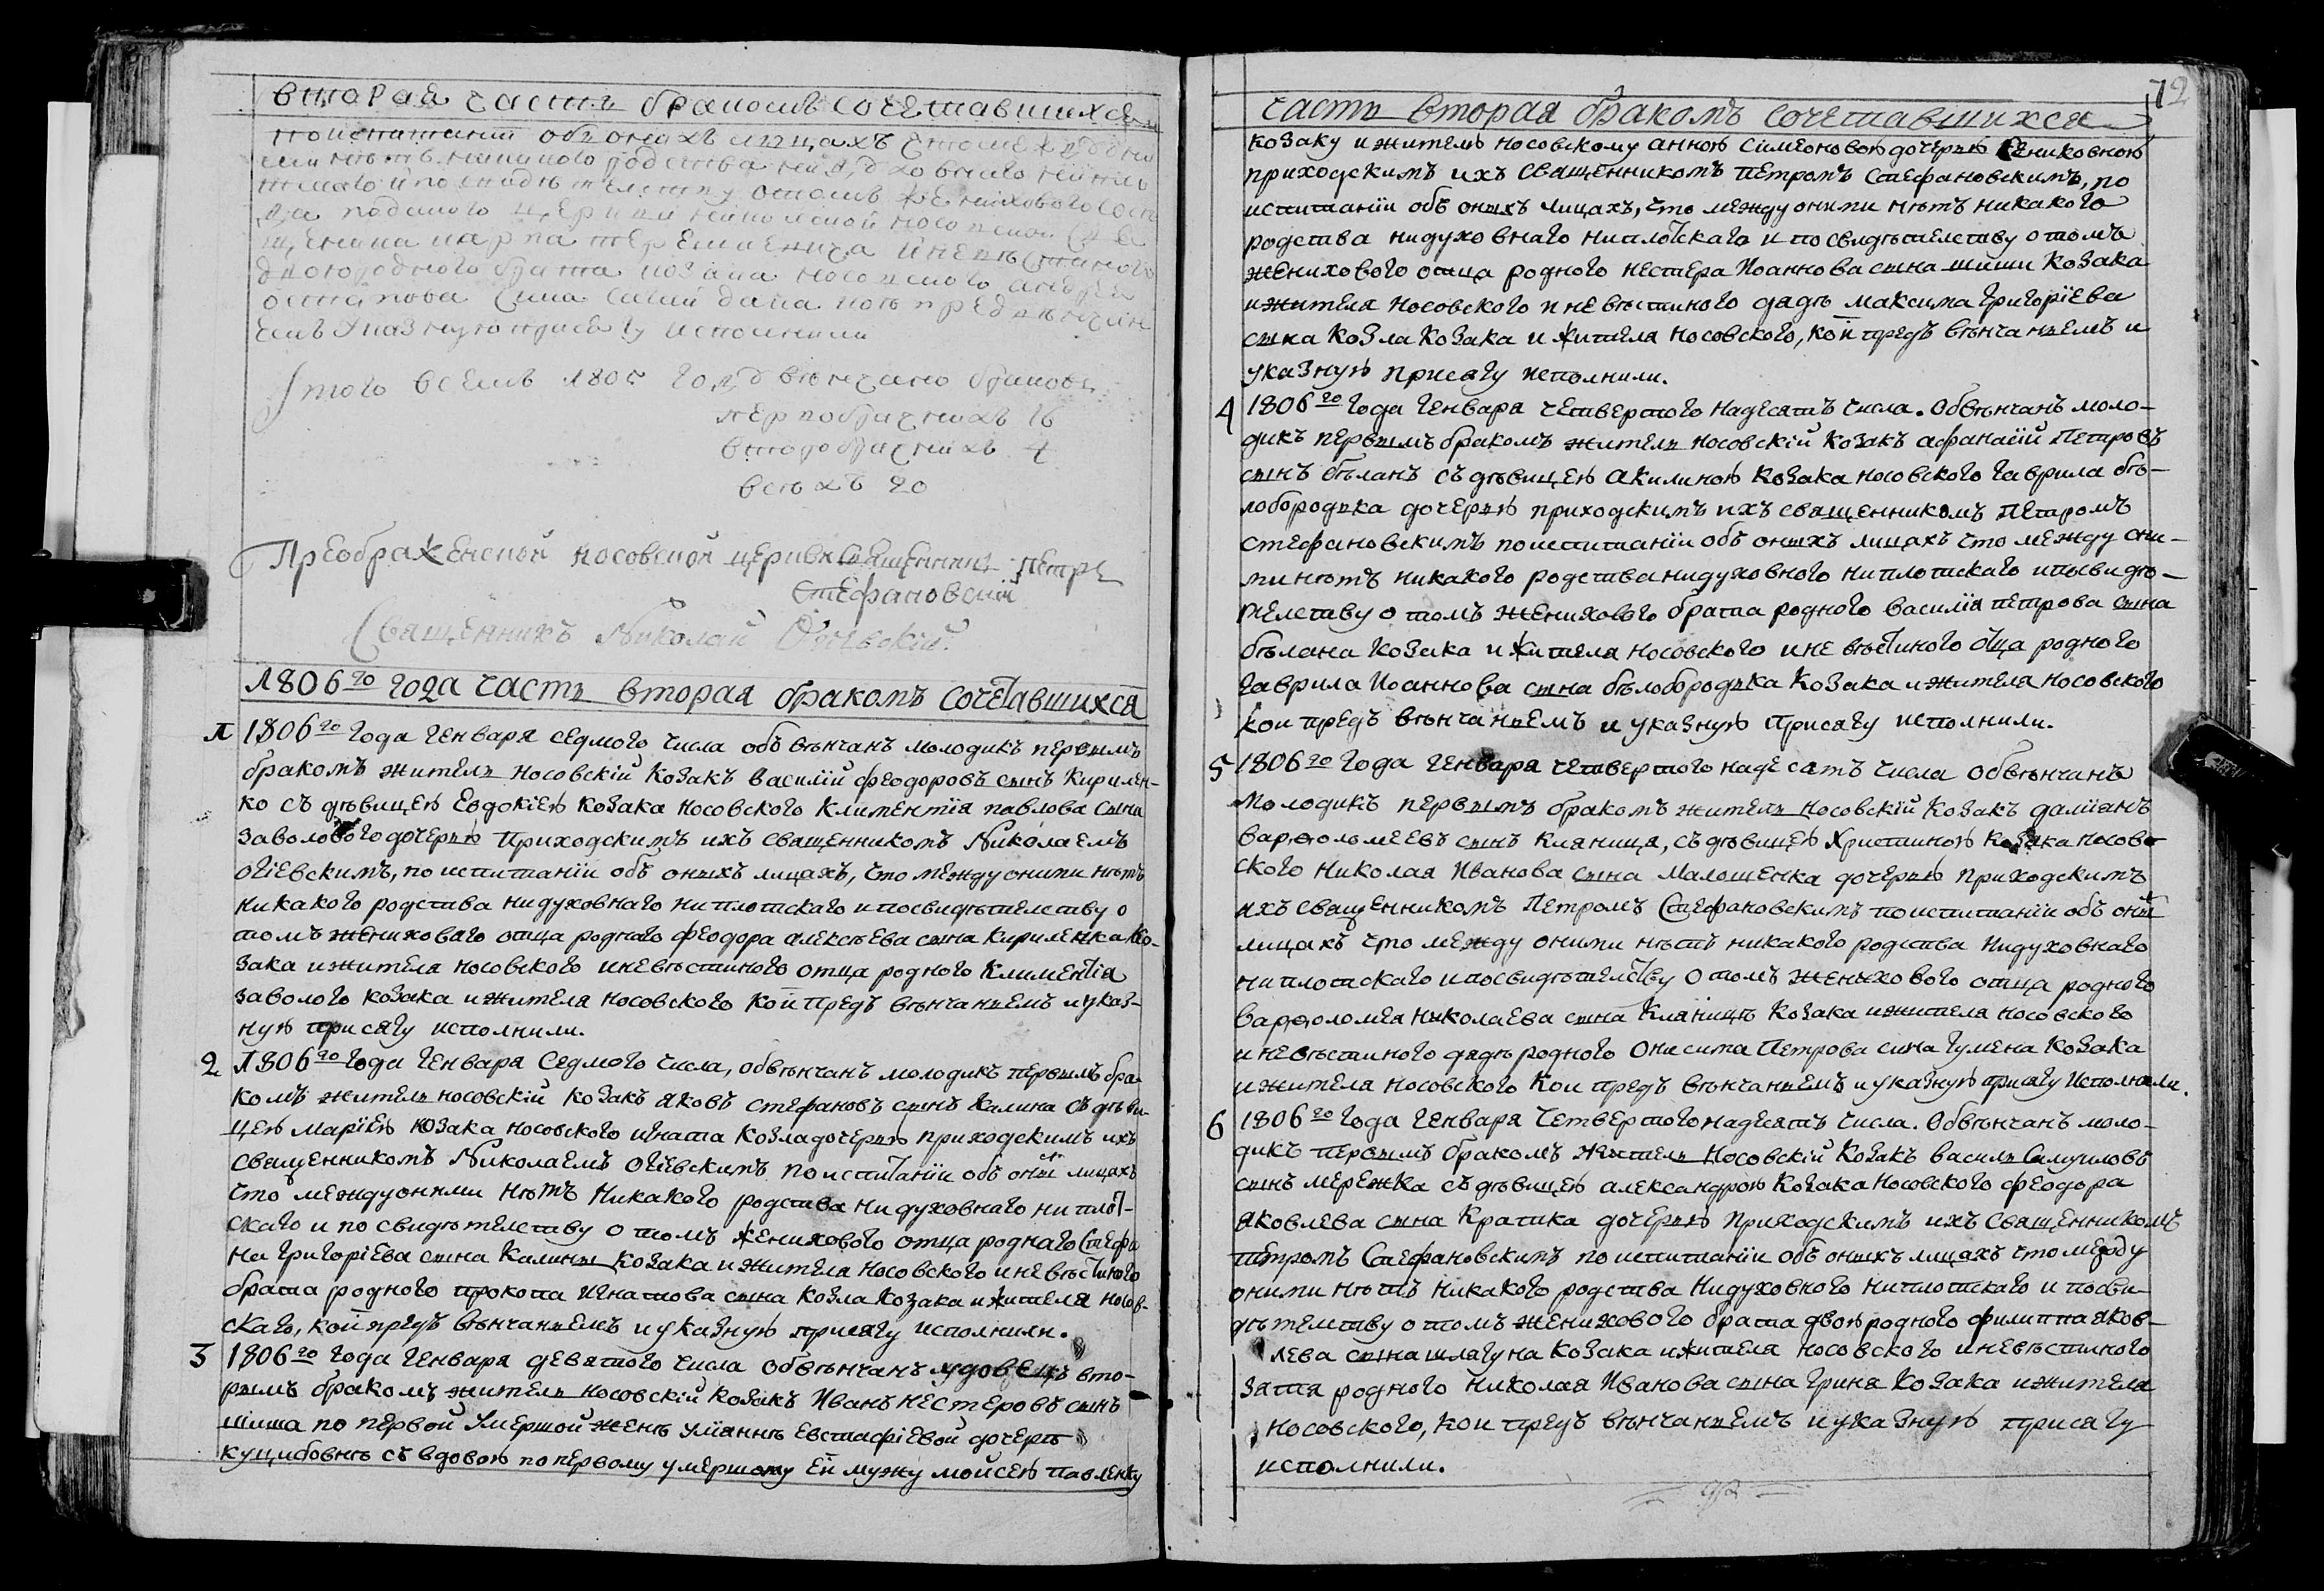 вторая часть бракомъ сочетавшихся
поиспитаніи объ онихъ лицахъ что между оны
ми нѣтъ никакого родства нидуховного нипло
тского ипосвидѣтелству отомъ жениховог
родного церкви носовской
двоюродного брата козака носовского андрея
остапова сина кои предъ вѣнчан
емъ указную присягу исполнили
Итого всемъ 1805 году вѣнчано браковъ
первобрачнихъ 16
второбрачнихъ 4
всѣхъ 20
Преображенской носовской церкви Священникъ Петръ
Стефановскій
Священникъ Николай Огіевскій.
1806го года часть вторая бракомъ сочетавшихся
1 1806го года Генваря седмого числа обѣвѣнчанъ молодикъ первымъ
бракомъ житель носовскій козакъ василій феодоровъ сынъ Кирилен-
ко съ дѣвицею Евдокіею козака носовского Климентія павлова сына
заволового дочерью приходскимъ ихъ священникомъ Николаемъ
огіевскимъ, по испитаніи объ оныхъ лицахъ, что между оними нѣтъ
никакого родства нидуховнаго ниплотскаго ипосвидѣтелству о
томъ женихового отца родного феодора алексѣева сына Кириленка Ко-
зака ижителя носовского иневѣстиного отца родного Климентія
заволого козака ижителя носовского кои предъ вѣнчаньемъ иуказ-
ную присягу исполнили.
2 1806го года Генваря Седмого числа, обвѣнчанъ молодикъ первымъ бра-
комъ житель носовскій козакъ яковъ стефановъ сынъ Калина съ дѣви-
цею маріею козака носовского игната козла дочерью приходскимъ ихъ
священникомъ Николаемъ огіевскимъ поиспитаніи объ оныхъ лицахъ
что междуоними нѣтъ никакого родства нидуховнаго ниплот-
скаго и по свидѣтелству о томъ женихового отца родного Стефа
на григоріева сына Калины козака и жителя носовского иневѣстиного
брата родного прокопа игнатова сына козла козака ижителя носов-
скаго, кои предъ вѣнчаньемъ иуказную присягу исполнили.
3 1806го года Генваря девятого числа обвѣнчанъ удовецъ вто-
рымъ бракомъ житель носовскій козакъ Иванъ нестеровъ сынъ
шиша по первой умершой женѣ уліяннѣ евстафіевой дочерѣ
куцибовнѣ съ вдовою попервому умершому ей мужу мойсею павленку
72
часть вторая бракомъ сочетавшихся
козаку ижителю носовскому анною симеоновою дочерью
приходскимъ ихъ священникомъ петромъ стефановскимъ, по
испитаніи объ оныхъ лицахъ, что между оними нѣтъ никакого
родства нидуховнаго ниплотскаго и по свидѣтелству отомъ
женихового отца родного нестера Иоаннова сына шиши козака
ижителя носовского и невѣстиного дядѣ максима григоріева
сына козла козака и жителя носовского, кои предъ вѣнчаньемъ и
указную присягу исполнили.
4 1806го года Генваря четвертого надесятъ числа. Обвѣнчанъ моло-
дикъ первымъ бракомъ житель носовскій козакъ афанасій Петровъ
сынъ бѣланъ съ дѣвицею акилиною козака носовского гаврила бѣ-
лобородька дочерью приходскимъ ихъ священникомъ Петромъ
стефановскимъ поиспитаніи объ оныхъ лицахъ что между они-
ми нѣтъ никакого родства нидуховного ниплотскаго ипосвидѣ-
телству о томъ женихового брата родного василія петрова сына
бѣлана козака и жителя носовского иневѣстиного отца родного
гаврила Иоаннова сына бѣлобородька козака ижителя носовского
кои предъ вѣнчаньемъ и указную присягу исполнили.
5 1806го года Генваря четвертого надесятъ числа обвѣнчанъ
молодикъ первымъ бракомъ житель носовскій козакъ даміянъ
варфоломеевъ сынъ Кляница, съ дѣвицею христиною козака носов-
ского николая Иванова сына Малошенка дочерью приходскимъ
ихъ священникомъ Петромъ Стефановскимъ поиспитаніи объ оныхъ
лицахъ что между оними нѣтъ никакого родства нидуховнаго
ниплотскаго ипосвидѣтелству о томъ женихового отца родного
варфоломея николаева сына Кляницѣ козака ижителя носовского
и невѣстиного дядѣ родного онисима Петрова сина гумена козака
ижителя носовского кои предъ вѣнчаньемъ и указную присягу исполнили.
6 1806го года Генваря четвертогонадесятъ числа. Обвѣнчанъ моло-
дикъ первымъ бракомъ житель носовскій козакъ василь Самуиловъ
сынъ мережка съ дѣвицею александрою козака носовского феодора
яковлева сына Кратика дочерью приходскимъ ихъ священникомъ
петромъ Стефановскимъ по испитаніи объ оныхъ лицахъ что между
оними нѣтъ никакого родства нидуховного ниплотскаго и посви-
дѣтелству о томъ женихового брата двоюродного филиппа яков-
лева сына шлагуна козака ижителя носовского иневѣстиного
зятя родного николая Иванова сына гриня козака ижителя
носовского, кои предъ вѣнчаньемъ иуказную присягу
исполнили.